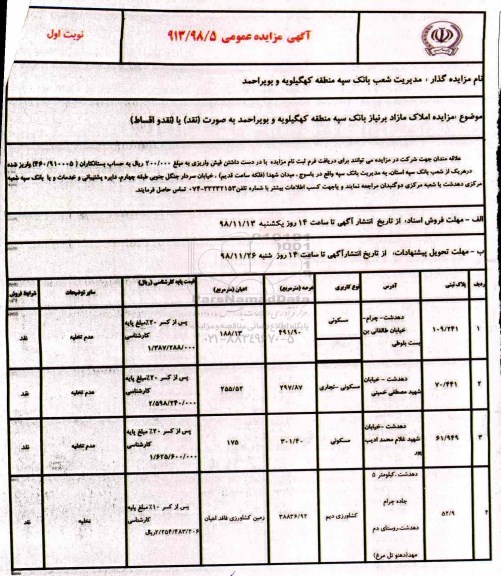 آگهی مزایده عمومی ۹۱۳/۹۸/۵
نوبت اول
نام مزایده گذار : مدیریت شعب بانک سپه منطقه کهگیلویه و بویراحمد
موضوع :مزایده املاک مازاد برنیاز بانک سپه منطقه کهگیلویه و بویراحمد به صورت (نقد) یا (نقدو اقساط)
علاقه مندان جهت شرکت در مزایده می توانند برای دریافت فرم ثبت نام مزایده با در دست داشتن فیش واریزی به مبلغ ۲۰۰/۰۰۰ ریال به حساب بستانکاران ( ۴۶۰/۹۱۰۰۰۵) واریز شده
درهریک از شعب بانک سپه استان، به مدیریت بانک سپه واقع در یاسوج ، میدان شهدا (فلکه ساعت قدیم) ، خیابان سردار جنگل جنوبی طبقه چهارم، دایره پشتیبانی و خدمات و یا بانک سپه شعبه
مرکزی دهدشت یا شعبه مرکزی دوگنبدان مراجعه نمایند و یاجهت کسب اطلاعات بیشتر با شماره تلفن ۰۷۴-۳۳۲۳۲۱۵۳ تماس حاصل فرمایند.
الف - مهلت فروش اسناد: از تاریخ انتشار آگهی تا ساعت ۱۴ روز یکشنبه ۹۸/۱۱/۱۳
ب - مهلت تحویل پیشنهادات: از تاریخ انتشارآگهی تا ساعت ۱۴ روز شنبه ۹۸/۱۱/۲۶
ردیف پلاک ثبتی آدرس نوع کاربری عرصه (مترمربع) اعیان (مترمربع) قیمت پایه کارشناسی (ریال) سایر توضیحات شرایط فروش
۱ ۱۰۹/۲۴۱ دهدشت- چرام- خیابان طالقانی بن بست بلوطی مسکونی ۴۹۱/۹۰ ۱۸۸/۱۳ پس از کسر ۲۰٪مبلغ پایه کارشناسی ۱/۳۸۷/۲۸۸/۰۰۰ عدم تخلیه نقد
۲ ۷۰/۴۴۱ دهدشت - خیابان شهید مصطفی خمینی مسکونی -تجاری ۲۹۷/۸۷ ۲۵۵/۵۲ پس از کسر ۲۰٪مبلغ پایه کارشناسی ۲/۵۹۸/۲۴۰/۰۰۰ عدم تخلیه نقد
۳ ۶۱/۹۴۹ دهدشت -خیابان شهید غلام محمد ادیب پور مسکونی ۳۰۱/۴۰ ۱۷۵ پس از کسر ۲۰٪ مبلغ پایه کارشناسی ۱/۶۲۵/۶۰۰/۰۰۰ عدم تخلیه نقد
۴ ۵۲/۹ دهدشت -کیلومتر ۵ جاده چرام دهدشت،روستای دم مهد(دهنو تل مرغ) کشاورزی دیم ۳۸۸۳۶/۹۲ زمین کشاورزی فاقد اعیان پس از کسر ۱۰٪ مبلغ پایه کارشناسی ۲/۲۵۴/۴۸۳/۲۰۶ریال تخلیه نقد
ParsNamadData
پایگاه اطلاع رسانی مناقصه و مزایده
۰۲۱-۸۸۳۴۹۶۷۰-۵